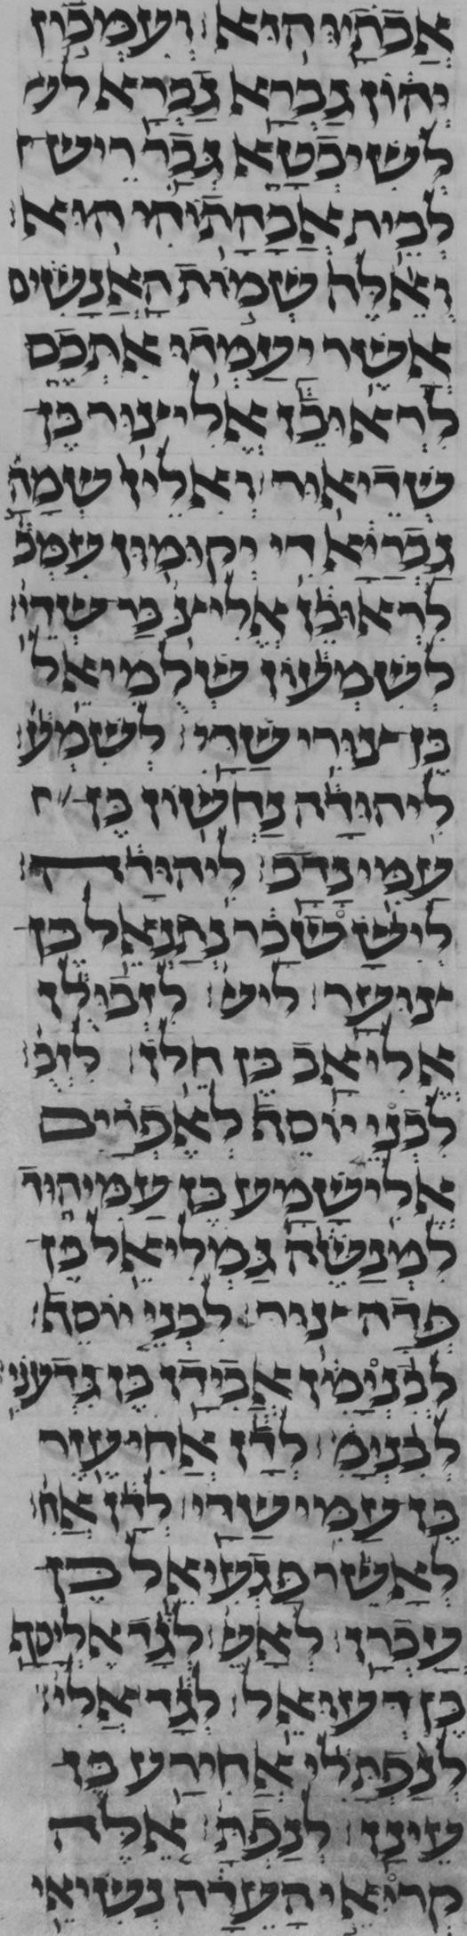 אֲבָהָתֽוֹהִי הוּא׃ וְעִמְּכוֹן
יְהוֹן גַּבְרָא גַּבְרָא לְ
לְשִׁיבְטָא גְּבַר רֵישׁ
לְבֵית אֲבָהָתוֹהִי הוּא׃
וְאֵלֶּה שְׁמוֹת הָאֲנָשִׁים
אֲשֶׁר יַעַמְדוּ אִתְּכֶם
לִרְאוּבֵן אֱלִיצוּר בֶּן
שְׁדֵיאוּר׃ וְאִלֵּין שְׁמָהָ
גֻּבְרַיָּא דִּי יְקוּמוּן עִמְּכ
לִרְאוּבֵן אֱלִיצ בַּר שְׁדֵי
לְשִׁמְעוֹן שְׁלֻמִיאֵל
בֶּן צוּרִי שַׁדָּי׃ לְשִׁמְע׳
לִיהוּדָה נַחְשׁוֹן בֶּן
עַמִּינָדָב׃ לִיהוּדָה׃
לְיִשָּׂשכָר נְתַנְאֵל בֶּן
צוּעָר׃ לְיִשׂ׳ לִזְבוּלֻן
אֱלִיאָב בֶּן חֵלֹן׃ לִזְב׳
לִבְנֵי יוֹסֵף לְאֶפְרַיִם
אֱלִישָׁמָע בֶּן עַמִּיהוּד
לִמְנַשֶּׁה גַּמְלִיאֵל בֶּן
פְּדָה צוּר׃ לִבְנֵי יוֹסֵף׃
לְבִנְיָמִן אֲבִידָן בֶּן גִּדְעֹנִי׃
לְבִנְיָמ׳ לְדָן אֲחִיעֶזֶר
בֶּן עַמִּישַׁדָּי׃ לְדָן אֲח׳
לְאָשֵׁר פַּגְעִיאֵל בֶּן
עָכְרָן׃ לְאָשׁ׳ לְגָד אֶלְיָסָף
בֶּן דְּעוּאֵל׃ לְגָד אֶלְי׳
לְנַפְתָּלִי אֲחִירַע בֶּן
עֵינָן׃ לְנַפְתָּ׳ אֵלֶּה
קְרוּאֵי הָעֵדָה נְשִׂיאֵי